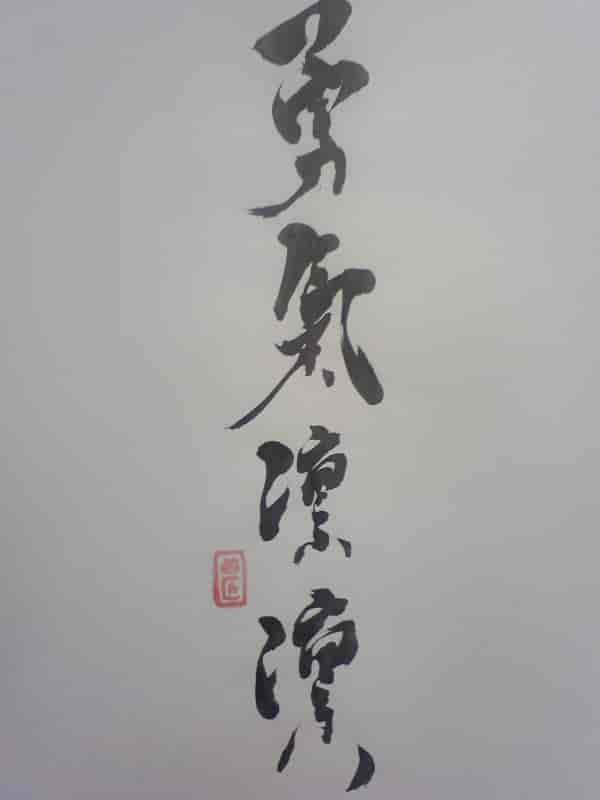 勇氣凛凛